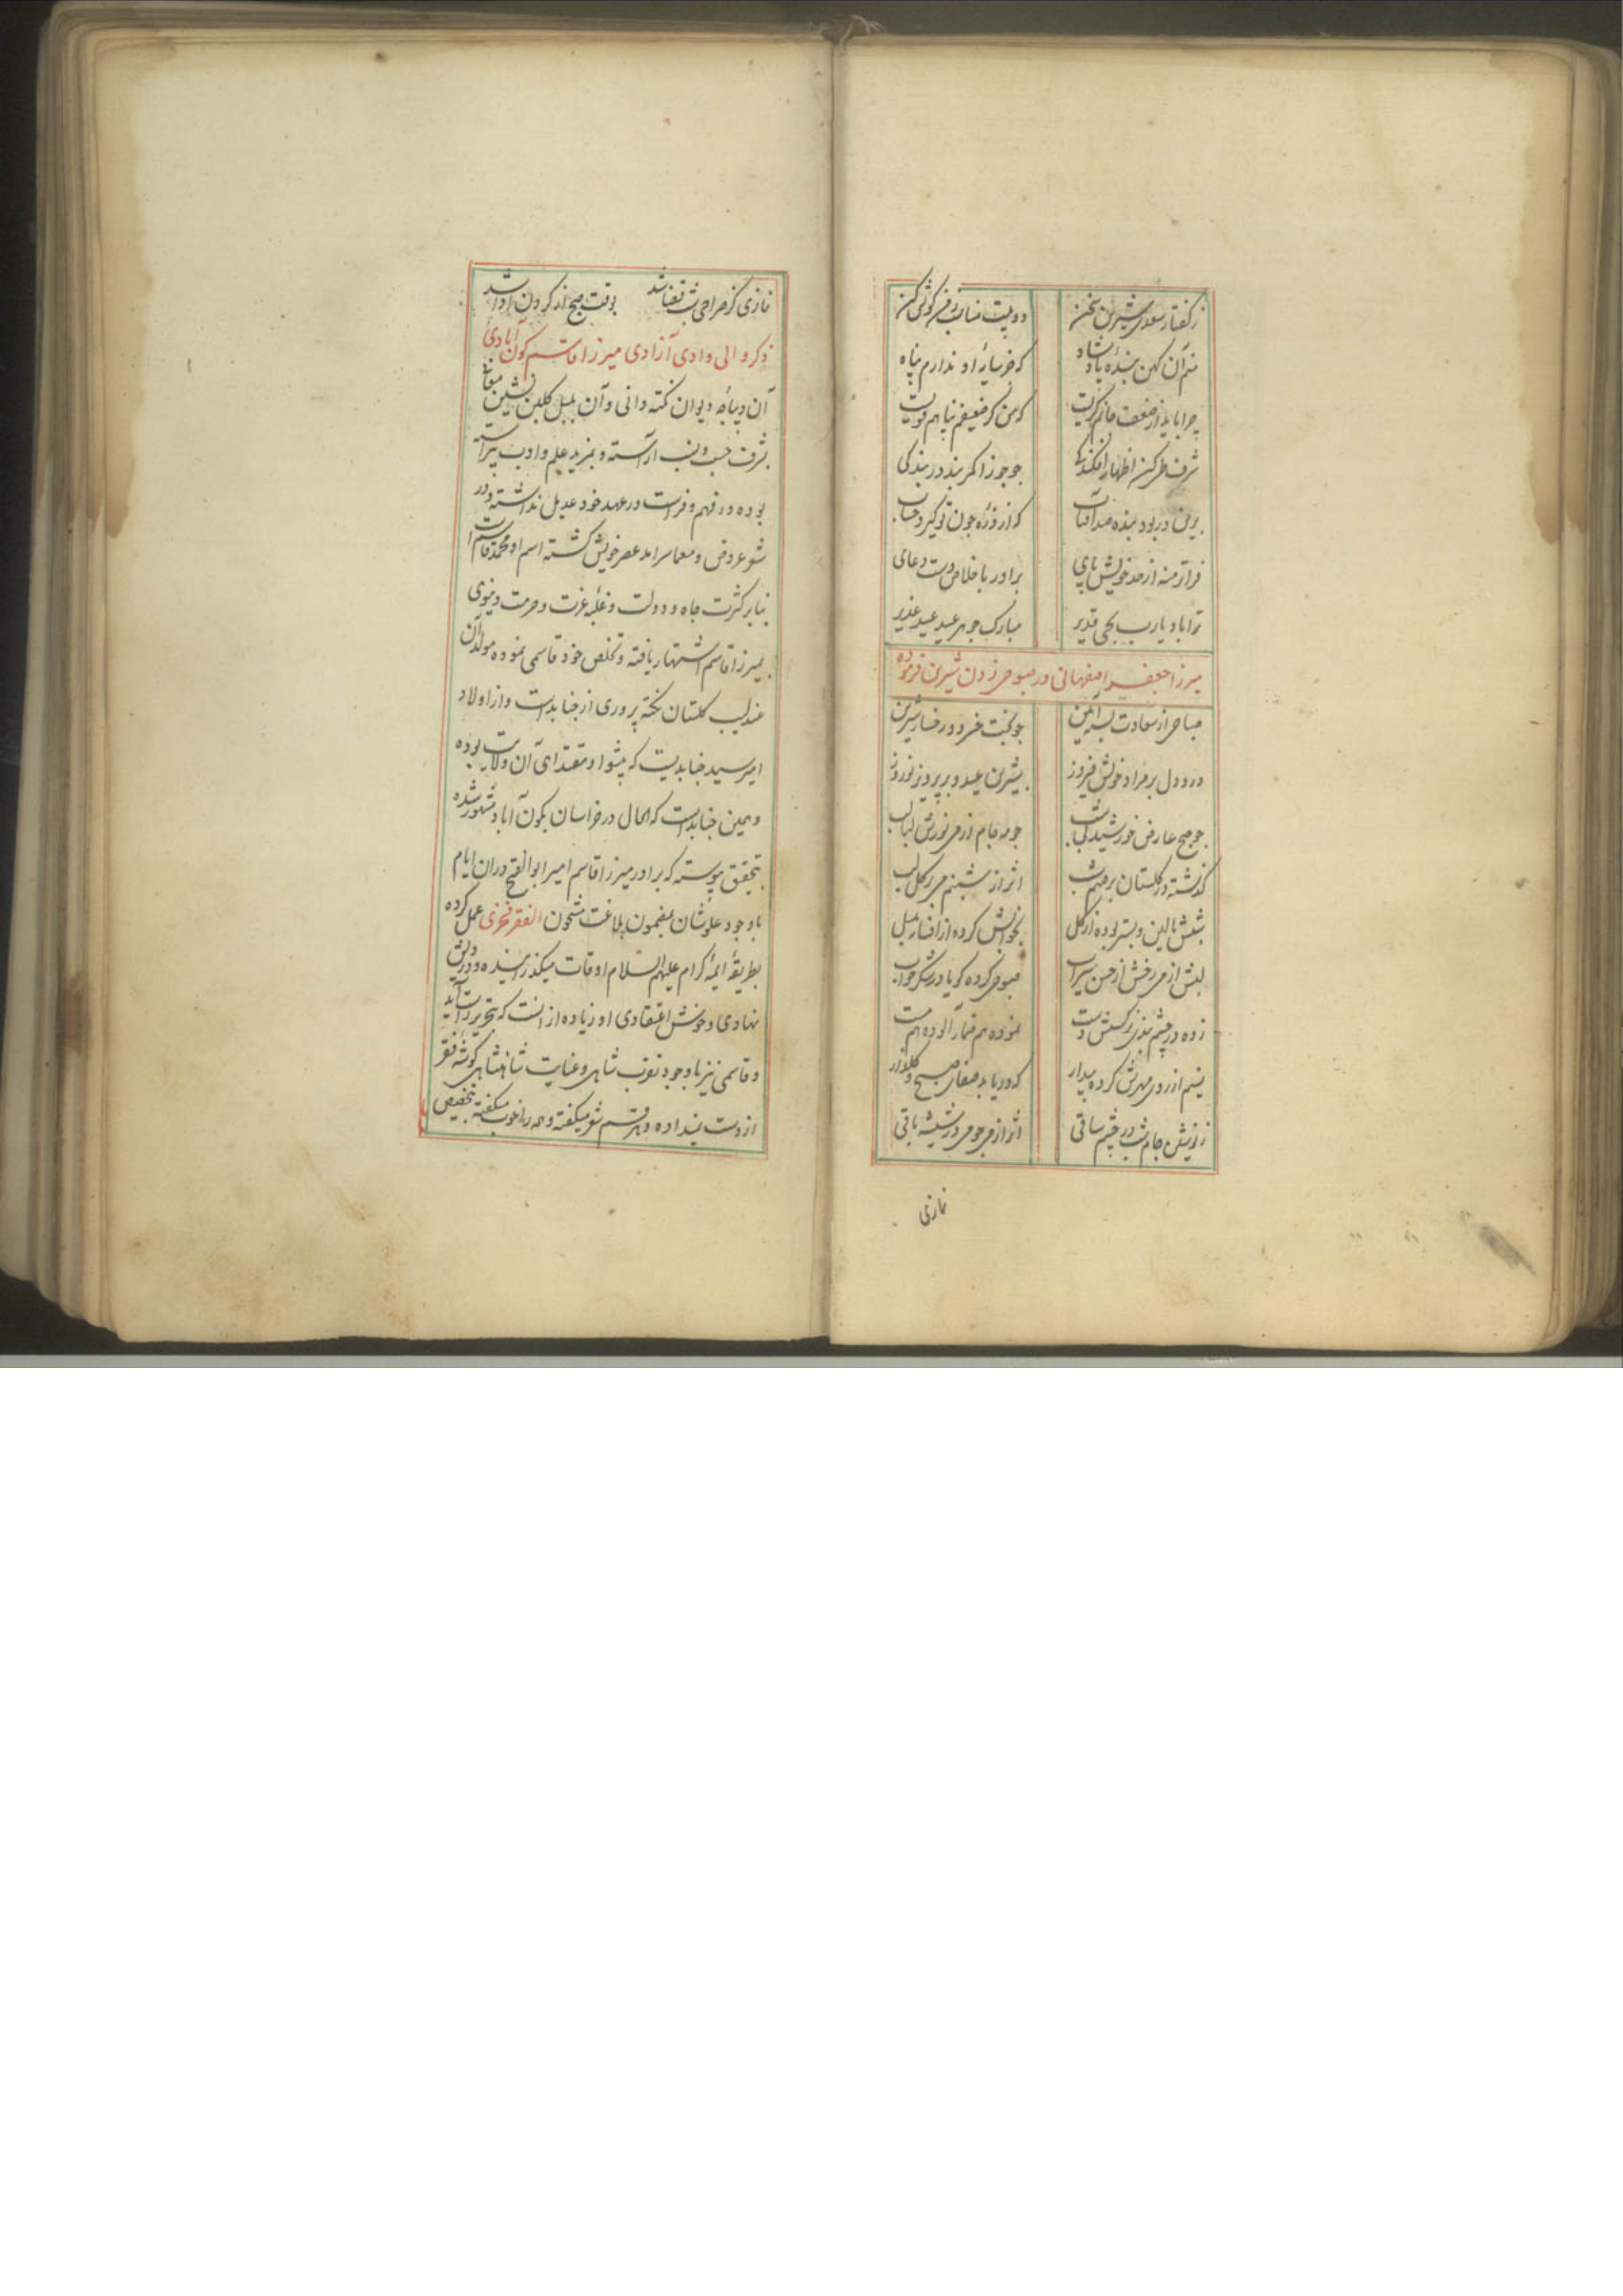 ز گفتار سعدی شیرین سخن دو بیت مناسب ز من گوش کن
منم آن کهن بندهٔ پادشاه که جز سایهٔ او ندارم پناه
چرا باید از ضعف حالم گریست که من گر ضعیفم پناهم قویست
شرف طرکن اظهار افکندگی چو جوزا کمر بند در بندگی
بود بنده صد آفتاب که از ذره چون تو گیرد حساب
فراتر منه از حد خویش پای برآور باخلاص دست دعای
ترا باد یارب بحی قدیر مبارک چو هر عید عید غدیر
میرزا جعفر اصفهانی در صبوحی زدن شیرین فرموده
صباحی از سعادت بسته آئین چو بخت خسرو و رخسار شیرین
درو دل بر مراد خویش فیروز بشیرین عید و بر پرویز نوروز
چو صبح عارض خورشید چو مه جام از می نورش لبالب
گذشته در گلستان بر صنم شب اثر از شبنم می بر گل لب
شبش بالین و بستر بوده از گل بخوابش کرده از افسانه بلبل
لبش از می رخش از حسن سیراب صبوحی کرده گویا در شکرخواب
زده در چشم بندی نرگسش دست نموده هم خمار آلوده هم مست
نسیم از روی مهرش کرده بیدار که دریابد صفای صبح و گلزار
ز نوشین جام شب در چشم ساقی اثر از می چو می در شیشه باقی
نمازی
نمازی کز صراحی شب قضا شد بوقت صبح از گردن ادا شد
ذکر والی وادی آزادی میرزا قاسم کون آبادی
آن دیباچهٔ دیوان نکته دانی و آن بلبل گلبن نشین معانی
بشرف حسب و نسب آراسته و بمزید علم و ادب پیراسته
بوده در فهم و فراست در عهد خود عدیل نداشته و در
شعر و عروض و معما سرآمد عصر خویش گشته اسم او محمد قاسم است
بنابر کثرت جاه و دولت و غلبهٔ عزت و حرمت دنیوی
بمیرزا قاسم اشتهار یافته و تخلص خود قاسمی نموده مولد آن
عندلیب گلستان نکته پروری از جنابد است و از اولاد
امیر سید جنابدیست که پیشوا و مقتدای آن ولایت بوده
و همین جنابد است که الحال در خراسان بکون آباد مشهور شده
بتحقیق پیوسته که برادر میرزا قاسم امیر ابو الفتح در آن ایام
با وجود علو شان بمضمون بلاغت مشحون الفقر فخری عمل کرده
بطریقهٔ ایمهٔ کرام علیهم السلام اوقات میگذرانیده و درویش
نهادی و خوش اعتقادی او زیاده از آنست که بتحریر راست آید
و قاسمی نیز با وجود تقرب شاهی و عنایت شاهنشاهی گوشهٔ فقر
از دست نمیداده و هر قسم شعر میگفته و همه را خوب میگفته بتخصیص